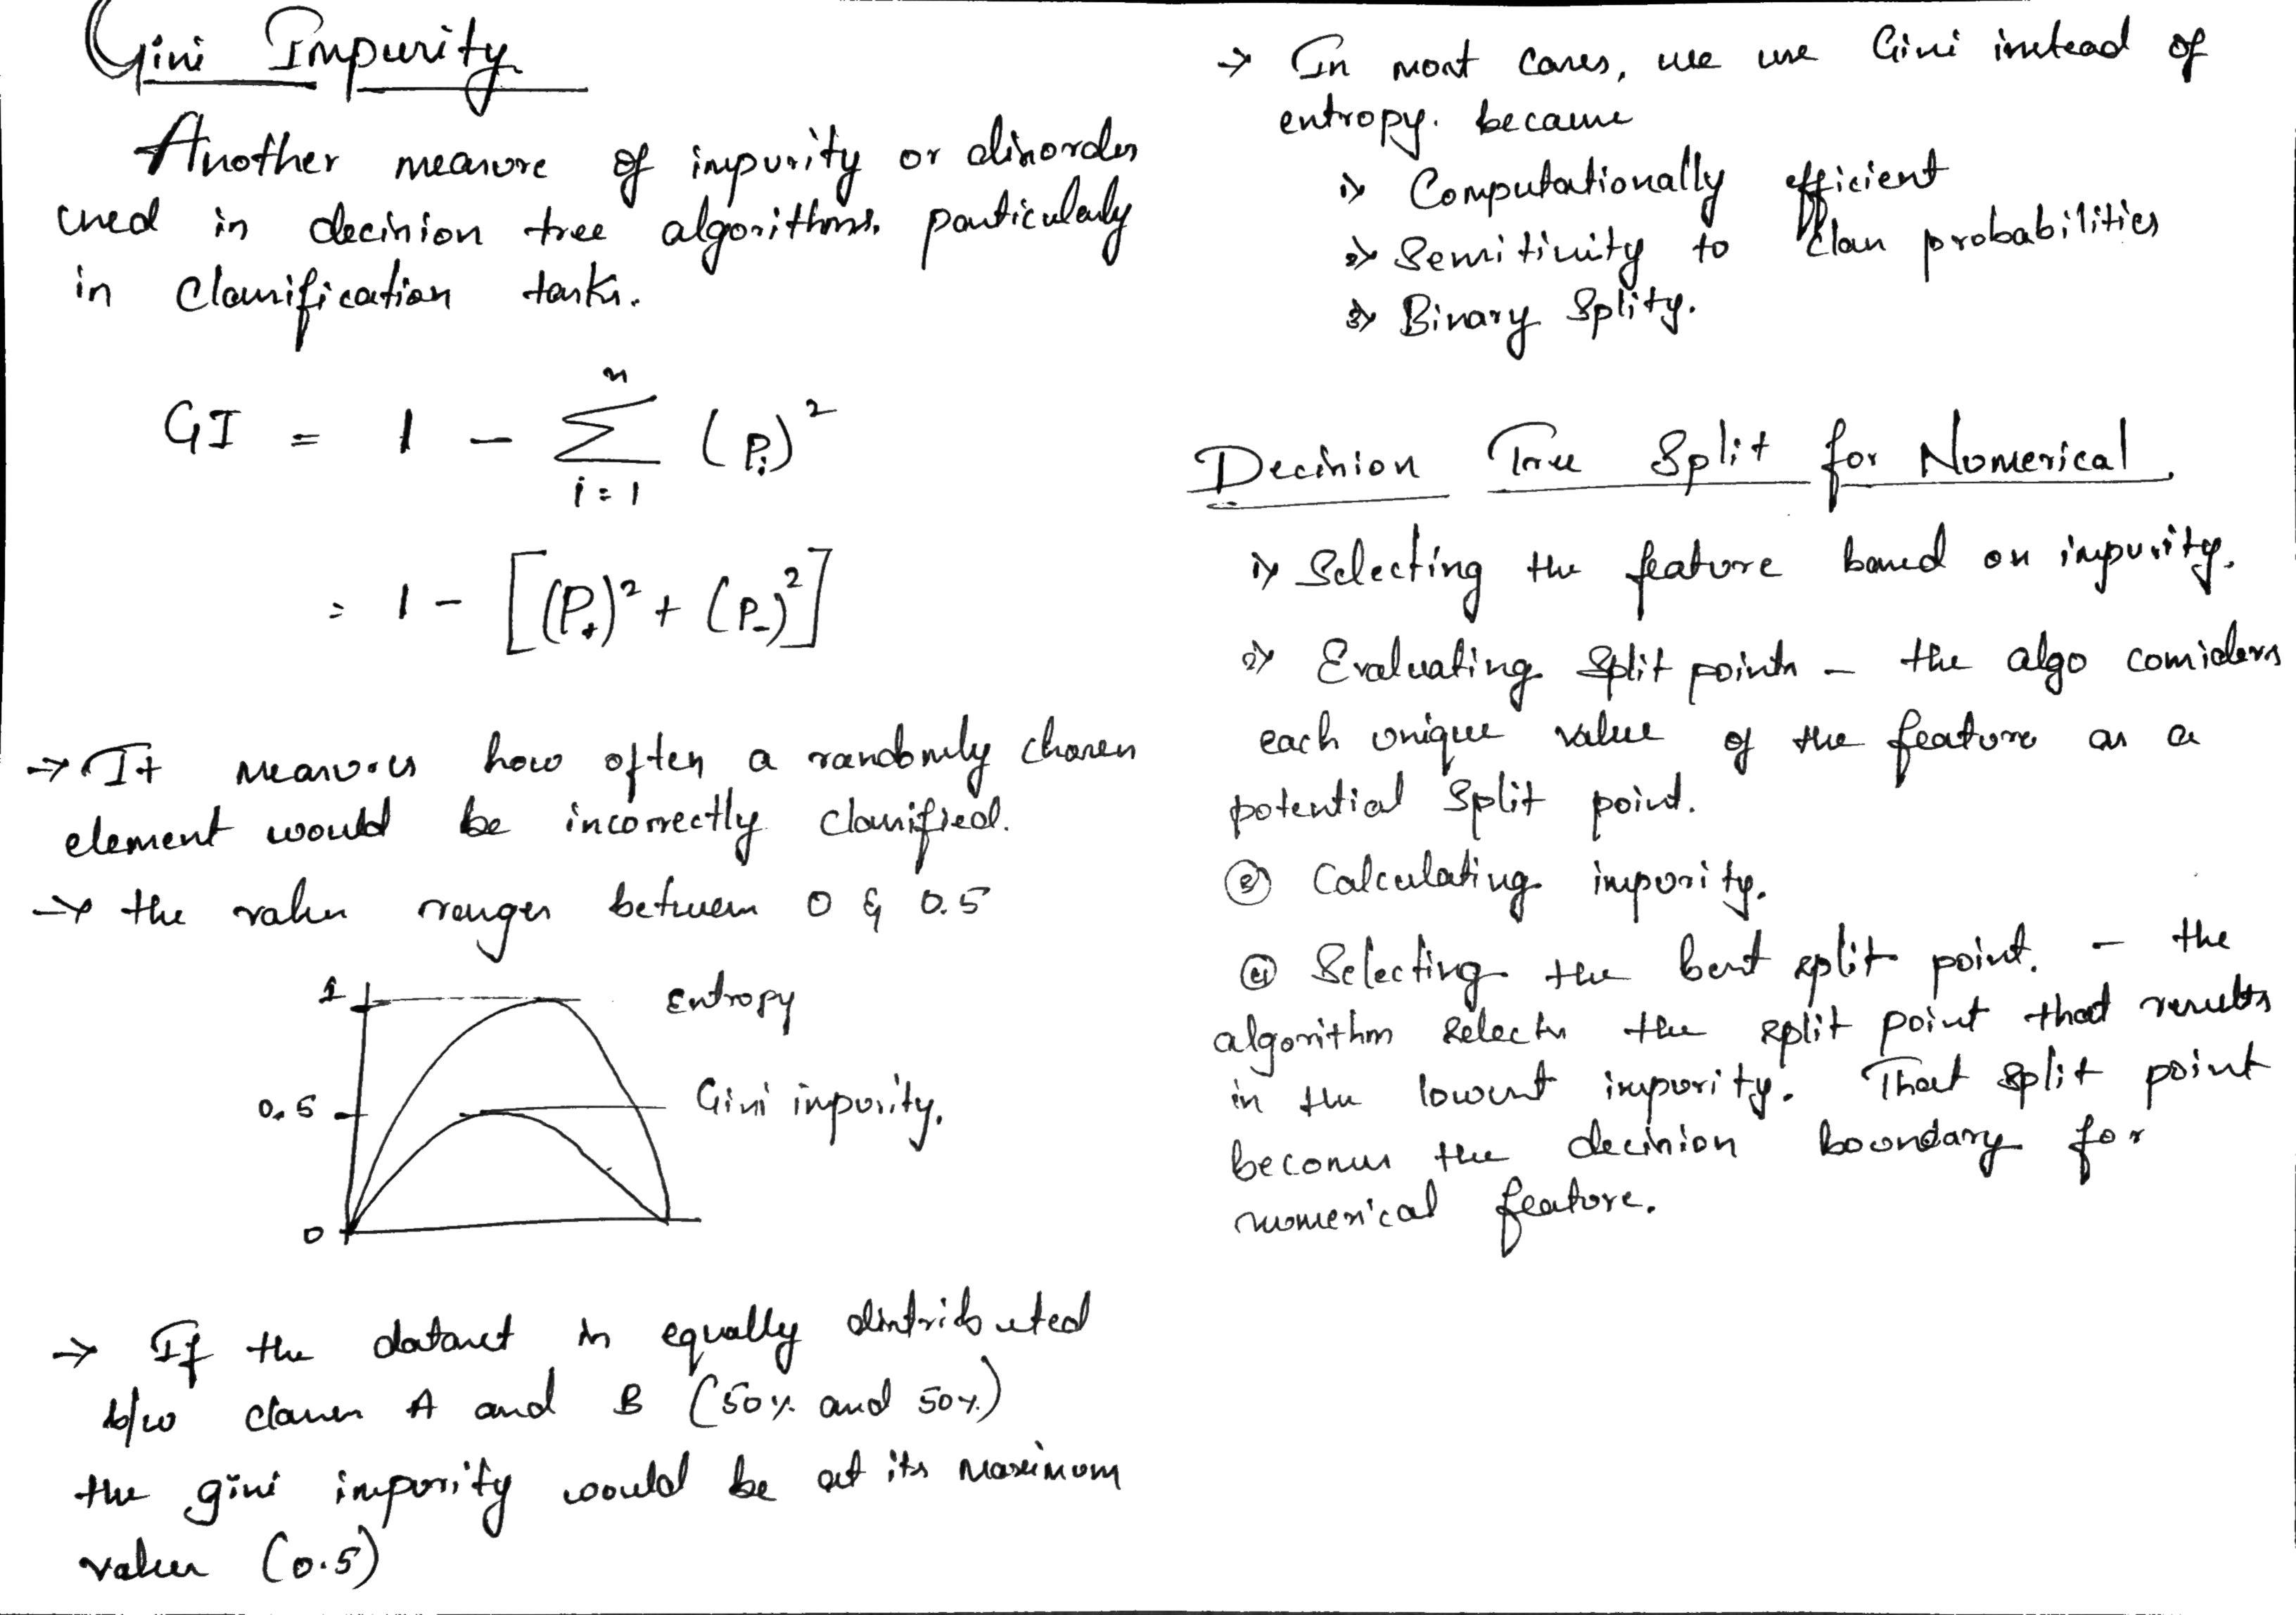 Gini Impurity
Another measure of impurity or disorder
used in decision tree algorithms, particularly
in classification tasks.
GI = 1 - n∑i=1 (Pi)²
= 1 - [(P+)² + (P-)²]
→ It measures how often a randomly chosen
element would be incorrectly classified.
→ the value ranges between 0 & 0.5
1
Entropy
0.5
Gini impurity.
0
→ If the dataset is equally distributed
b/w classes A and B (50% and 50%)
the gini impurity would be at its maximum
value (0.5)
→ In most cases, we use Gini instead of
entropy. because
1) Computationally efficient
2) Sensitivity to class probabilities
3) Binary Splity.
Decision Tree Split for Numerical
1) Selecting the feature based on impurity.
2) Evaluating Split points - the algo considers
each unique value of the feature as a
potential split point.
③ Calculating impurity.
④ Selecting the best split point. - the
algorithm selects the split point that results
in the lowest impurity. That split point
becomes the decision boundary for
numerical feature.